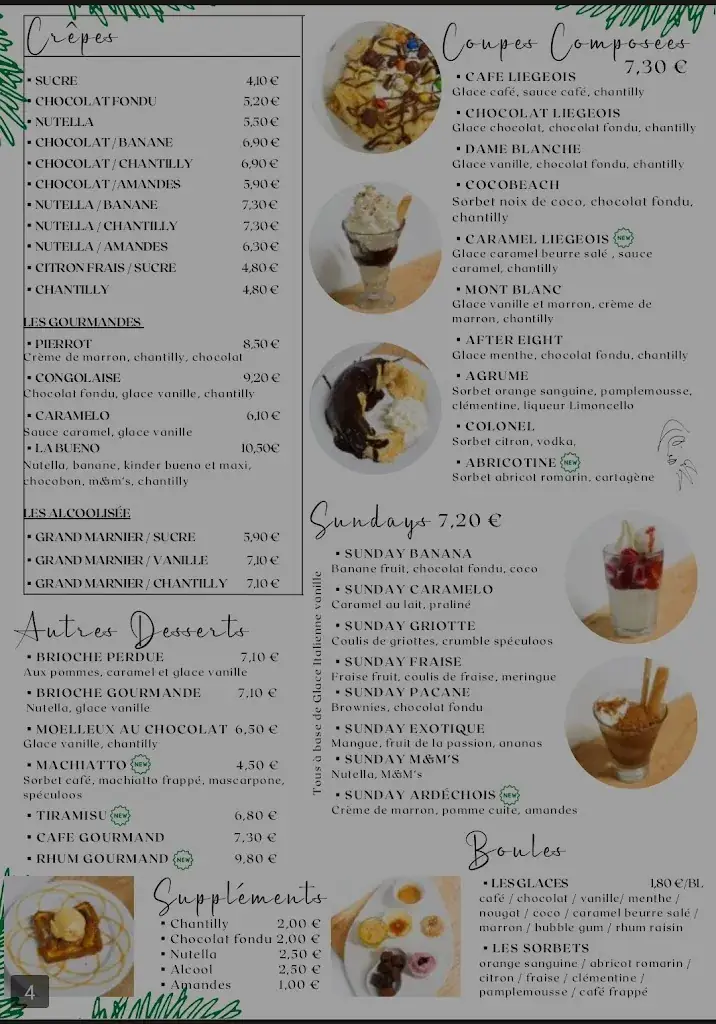 Crêpes
▪ SUCRE 4,10 €
▪ CHOCOLAT FONDU 5,20 €
▪ NUTELLA 5,50 €
▪ CHOCOLAT / BANANE 6,90 €
▪ CHOCOLAT / CHANTILLY 6,90 €
▪ CHOCOLAT /AMANDES 5,90 €
▪ NUTELLA / BANANE 7,30 €
▪ NUTELLA / CHANTILLY 7,30 €
▪ NUTELLA / AMANDES 6,30 €
▪ CITRON FRAIS / SUCRE 4,80 €
▪ CHANTILLY 4,80 €
LES GOURMANDES
▪ PIERROT 8,50 €
Crème de marron, chantilly, chocolat
▪ CONGOLAISE 9,20 €
Chocolat fondu, glace vanille, chantilly
▪ CARAMELO 6,10 €
Sauce caramel, glace vanille
▪ LA BUENO 10,50€
Nutella, banane, kinder bueno et maxi,
chocobon, m&m's, chantilly
LES ALCOOLISÉE
▪ GRAND MARNIER / SUCRE 5,90 €
▪ GRAND MARNIER / VANILLE 7,10 €
▪ GRAND MARNIER / CHANTILLY 7,10 €
Autres Desserts
▪ BRIOCHE PERDUE 7,10 €
Aux pommes, caramel et glace vanille
▪ BRIOCHE GOURMANDE 7,10 €
Nutella, glace vanille
▪ MOELLEUX AU CHOCOLAT 6,50 €
Glace vanille, chantilly
▪ MACHIATTO NEW 4,50 €
Sorbet café, machiatto frappé, mascarpone,
spéculoos
▪ TIRAMISU NEW 6,80 €
▪ CAFE GOURMAND 7,30 €
▪ RHUM GOURMAND NEW 9,80 €
Suppléments
▪ Chantilly 2,00 €
▪ Chocolat fondu 2,00 €
▪ Nutella 2,50 €
▪ Alcool 2,50 €
▪ Amandes 1,00 €
4
Coupes Composees
7,30 €
▪ CAFE LIEGEOIS
Glace café, sauce café, chantilly
▪ CHOCOLAT LIEGEOIS
Glace chocolat, chocolat fondu, chantilly
▪ DAME BLANCHE
Glace vanille, chocolat fondu, chantilly
▪ COCOBEACH
Sorbet noix de coco, chocolat fondu,
chantilly
▪ CARAMEL LIEGEOIS NEW
Glace caramel beurre salé , sauce
caramel, chantilly
▪ MONT BLANC
Glace vanille et marron, crème de
marron, chantilly
▪ AFTER EIGHT
Glace menthe, chocolat fondu, chantilly
▪ AGRUME
Sorbet orange sanguine, pamplemousse,
clémentine, liqueur Limoncello
▪ COLONEL
Sorbet citron, vodka,
▪ ABRICOTINE NEW
Sorbet abricot romarin, cartagène
Sundays 7,20 €
Tous à base de Glace Italienne vanille
▪ SUNDAY BANANA
Banane fruit, chocolat fondu, coco
▪ SUNDAY CARAMELO
Caramel au lait, praliné
▪ SUNDAY GRIOTTE
Coulis de griottes, crumble spéculoos
▪ SUNDAY FRAISE
Fraise fruit, coulis de fraise, meringue
▪ SUNDAY PACANE
Brownies, chocolat fondu
▪ SUNDAY EXOTIQUE
Mangue, fruit de la passion, ananas
▪ SUNDAY M&M'S
Nutella, M&M's
▪ SUNDAY ARDÉCHOIS NEW
Crème de marron, pomme cuite, amandes
Boules
▪ LES GLACES 1,80 €/BL
café / chocolat / vanille/ menthe /
nougat / coco / caramel beurre salé /
marron / bubble gum / rhum raisin
▪ LES SORBETS
orange sanguine / abricot romarin /
citron / fraise / clémentine /
pamplemousse / café frappé